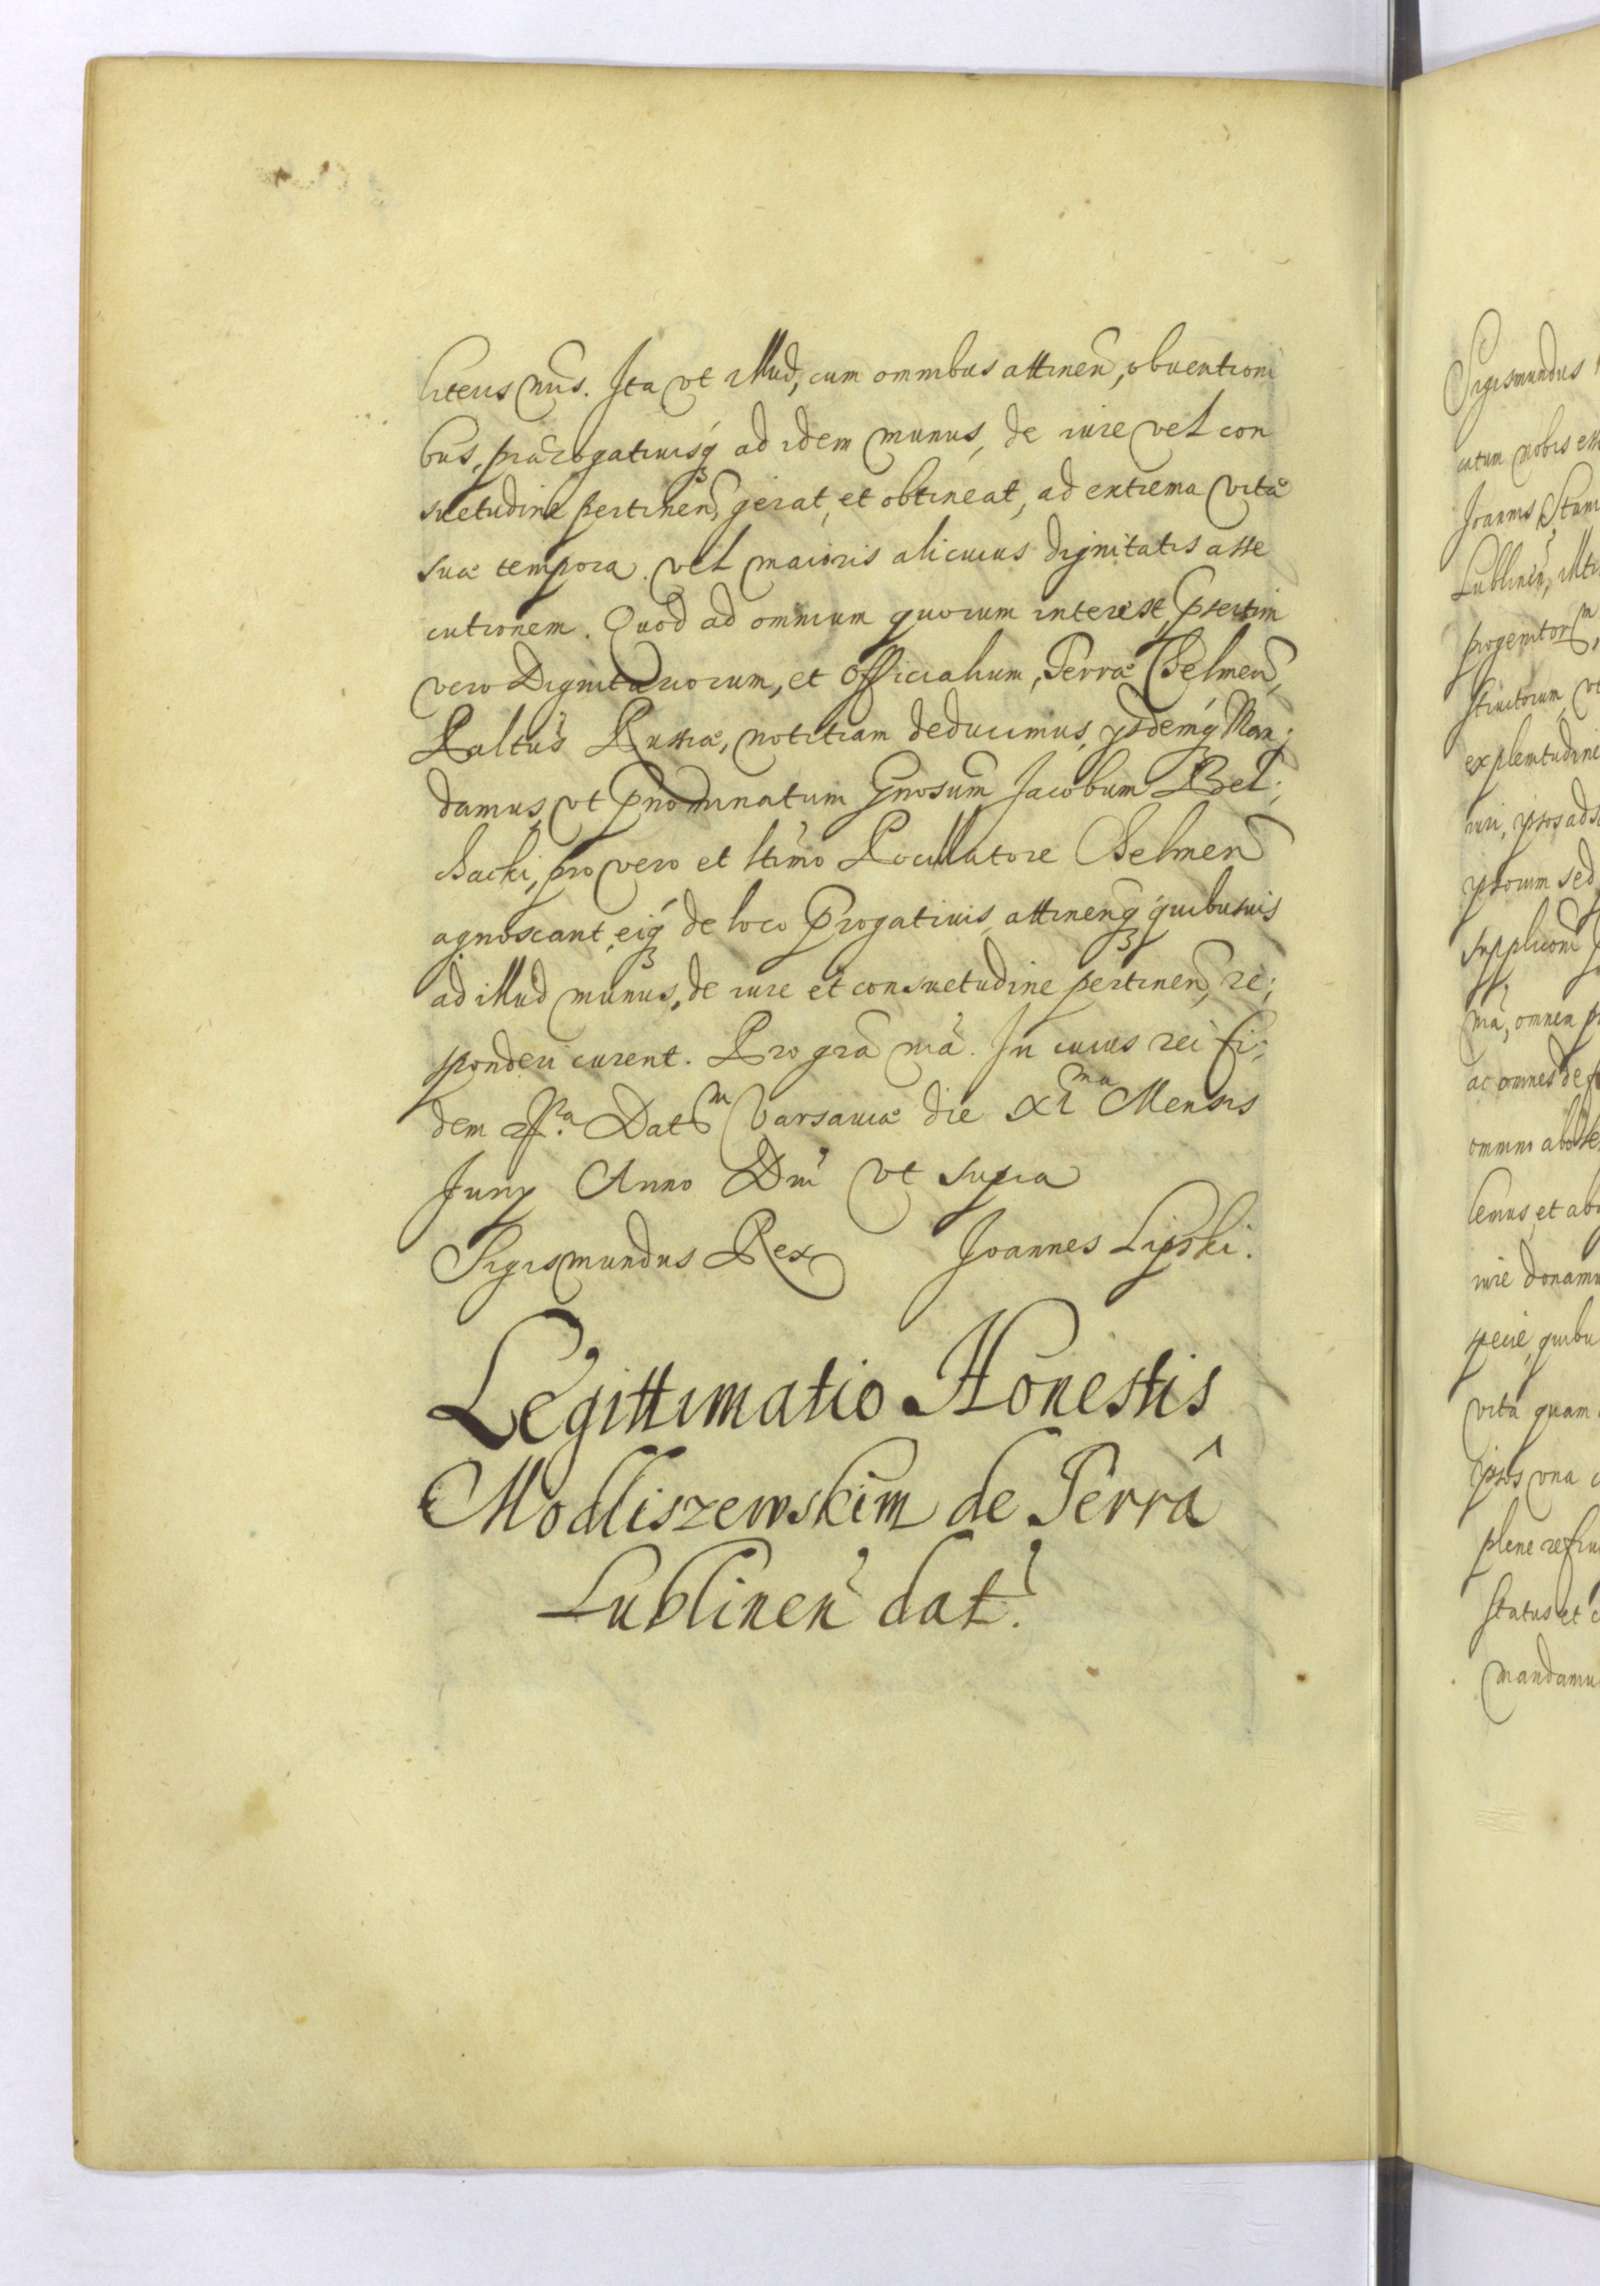 literis nris. Ita vt illud, cum omnibus attinen, obuentioni
bus, praerogatiuisq ad idem munus, de iure vel con
suetudine pertinen, gerat, et obtineat, ad extrema vitae
suae tempora. vel maioris alicuius dignitatis asse
cutionem. Quod ad omnium quorum interest, psertim
vero Dignitariorum, et Officialium, Terrae Chelmen,
Paltus Russiae, notitiam deducimus, ysdemq Man;
damus, vt pnominatum Gnosum Jacobum Bel;
chacki, pro vero et ltimo Pocillatore Chelmen
agnoscant, eiq de loco Progatiuis, attinenq quibusuis
ad illud munus, de iure et consuetudine pertinen, re;
sponderi curent. Pro gra nra. In cuius rei fi;
dem Dat Varsauiae die XI Mensis
Juny Anno Dni vt supra
Sigismundus Rex Joannes Lipski.
Legittimatio Honestis
Modliszewskim de Terrâ
Lublinen dat.
Sigismundus
catum nobis
Joannis Stani
Lublinen,
progenitor
vt
ex plenitudine
iuri, ipsos ad
ipsorum sed
omnem
ac omnes de
omnino
lemus et
iure donamu
specie, quibu
vita quam
ipsos vna
plene
status et
mandamu